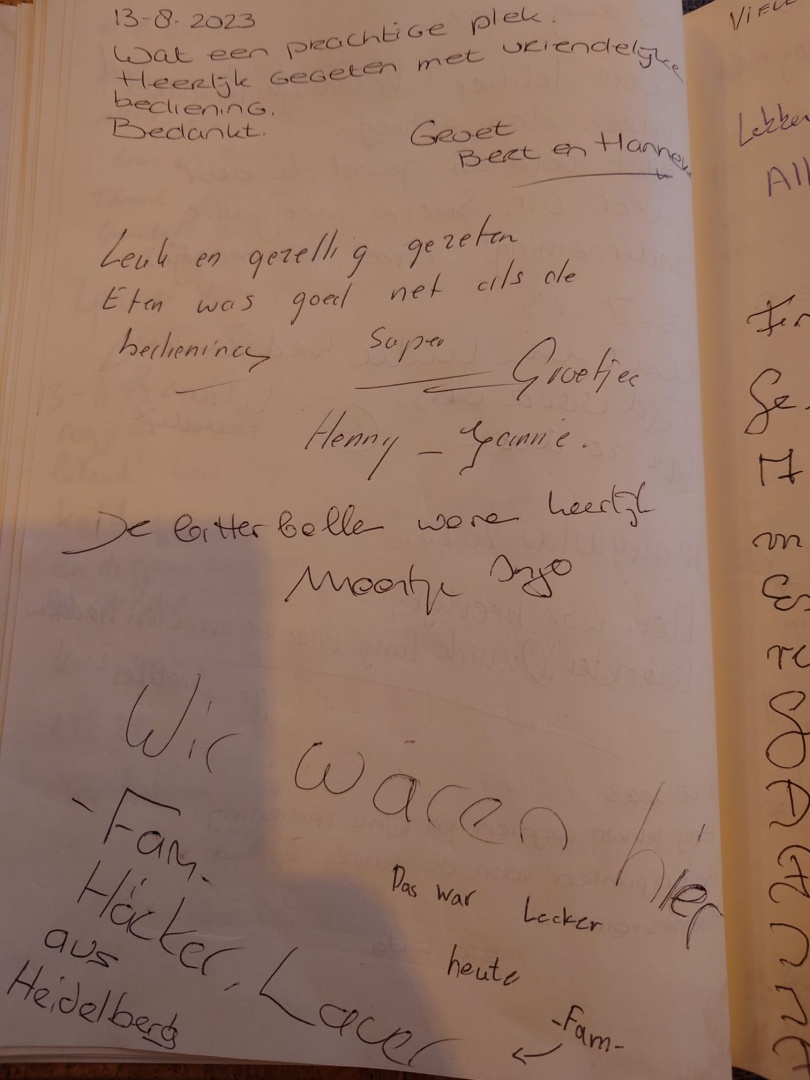 13-8-2023
Wat een prachtige plek.
Heerlijk gegeten met vriendelijke
bediening.
Bedankt.
Groet
Bert en Hanneke
Leuk en gezellig gezeten
Eten was goed net als de
bediening Super
Groetjes
Henny - Jannie.
De bitterballe ware heerlijk
Wir waren hier
-Fam-
Häcker, Lacer
aus
Heidelberg
Das war Lecker
heute
-Fam-
Viele
Lekker
All